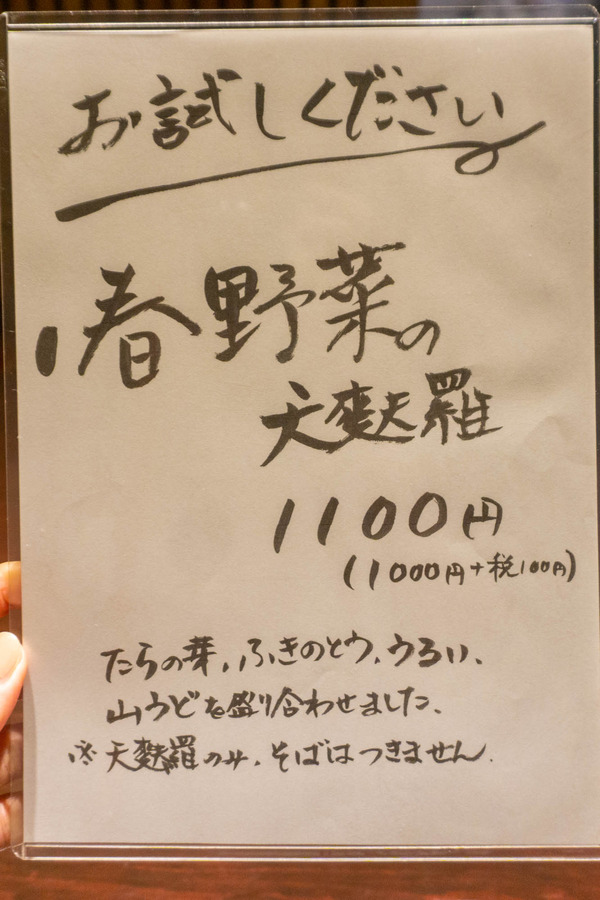 お試しください
・春野菜の
天麩羅
1100円
(1000円+税100円)
たらの芽、ふきのとう、うるい、
山うどを盛り合わせました、
※天麩羅のみ、そばはつきません.